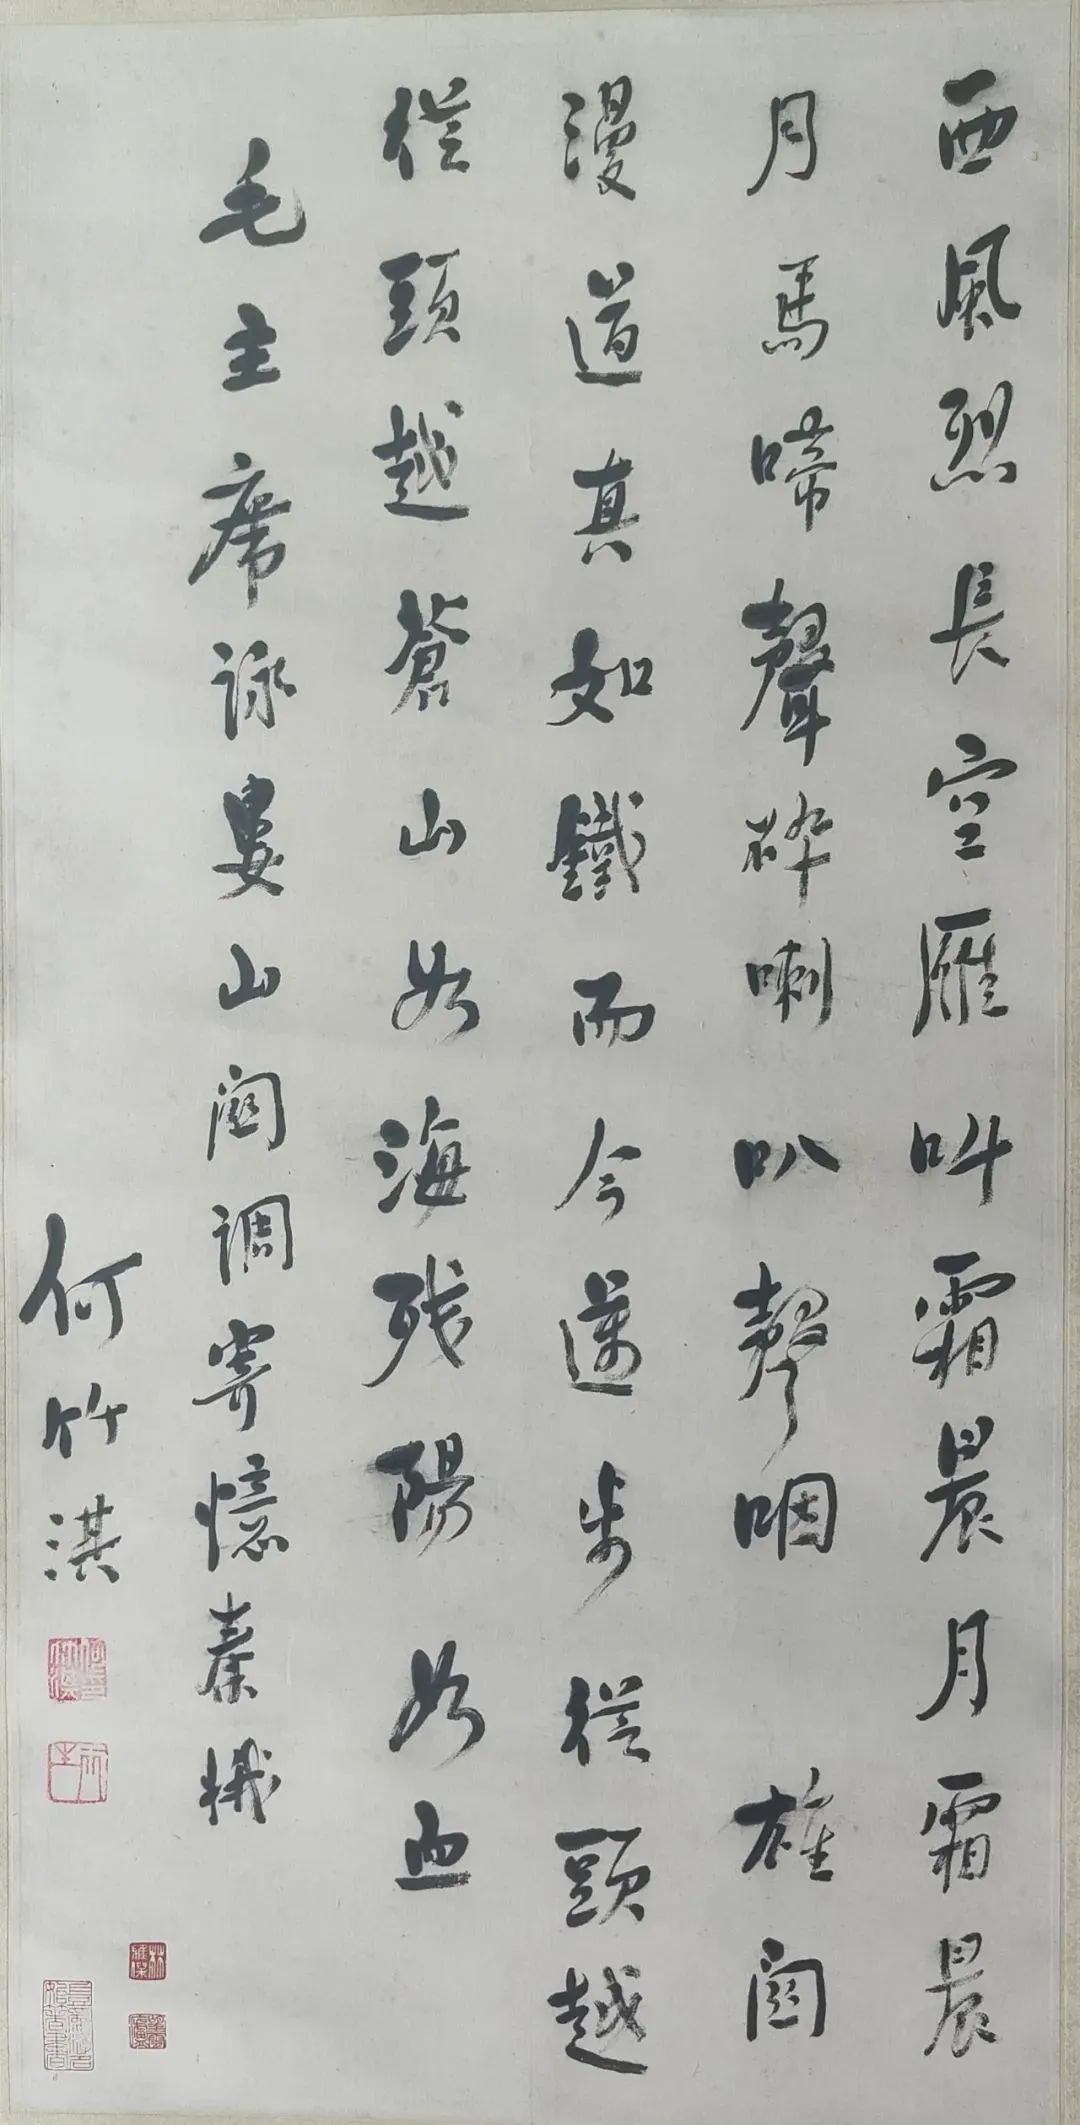 西風烈長空雁叫霜晨月霜晨
月馬啼聲碎喇叭聲咽　雄關
漫道真如鐵而今邁步從頭越
從頭越蒼山如海残陽如血
毛主席詠婁山關調寄憶秦娥
何竹淇